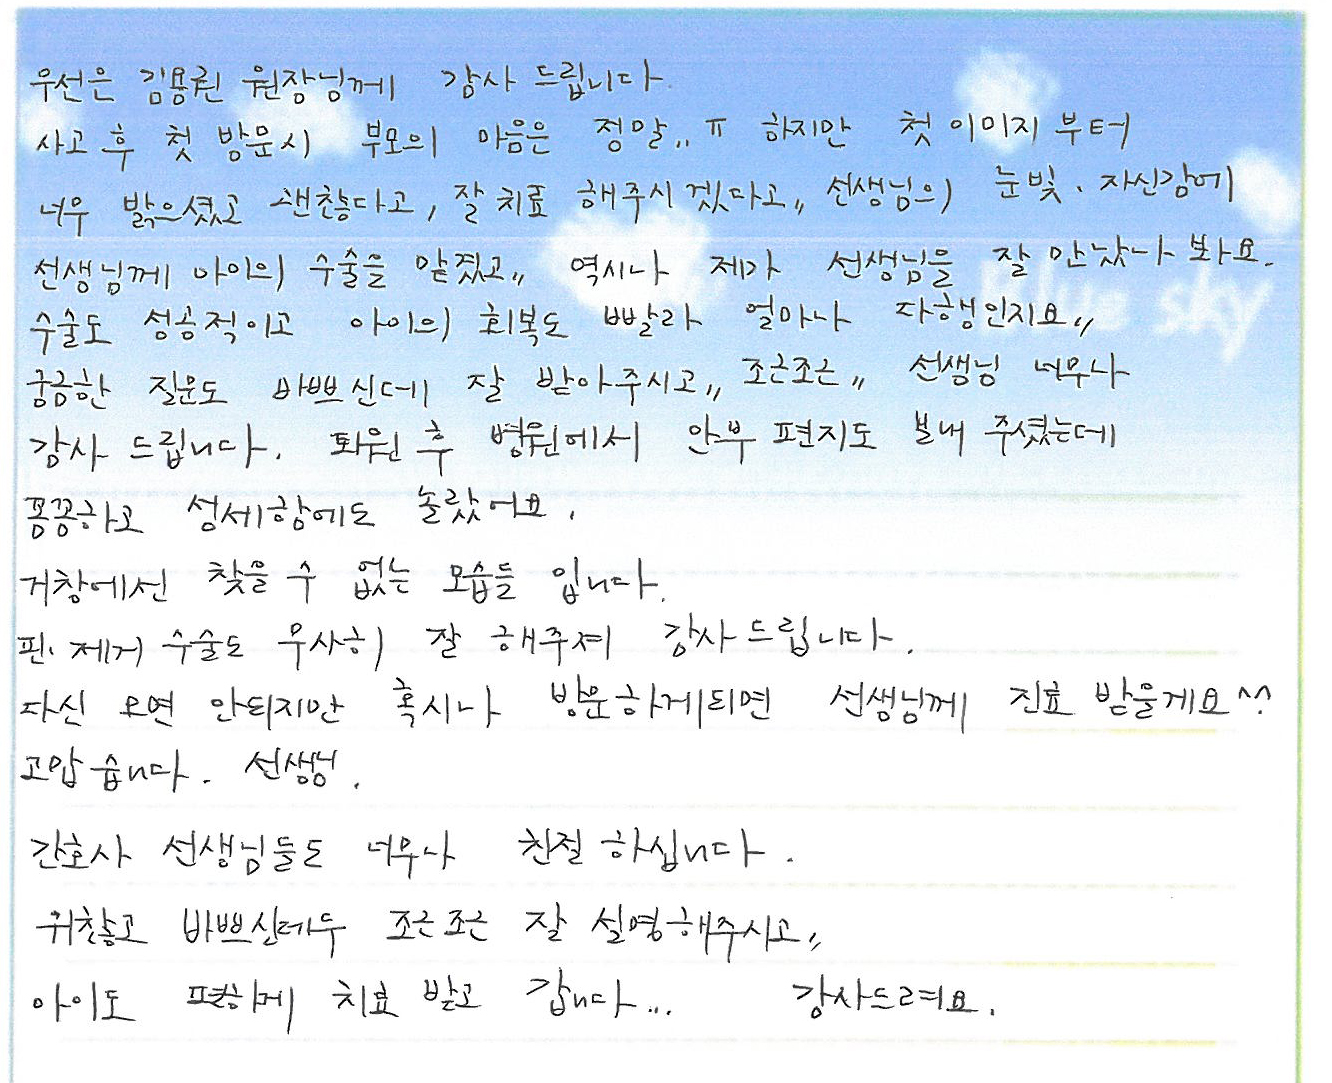 우선은 김용권 원장님께 감사 드립니다
사고 후 첫 방문시 부모의 마음은 정말,, ㅠ 하지만 첫 이미지 부터
너무 밝으셨고 괜찮다고, 잘 치료 해주시겠다고,, 선생님의 눈빛. 자신감에
선생님께 아이의 수술을 맡겼고,, 역시나 제가 선생님을 잘 만났나 봐요.
수술도 성공적이고 아이의 회복도 빨라 얼마나 다행인지요,,
궁금한 질문도 바쁘신데 잘 받아주시고,, 조근조근,, 선생님 너무나
감사 드립니다. 퇴원 후 병원에서 안부 편지도 보내 주셨는데
꼼꼼하고 섬세함에도 놀랐어요.
거창에선 찾을 수 없는 모습들 입니다.
핀. 제거 수술도 무사히 잘 해주셔 감사드립니다.
다신 오면 안되지만 혹시나 방문하게되면 선생님께 진료 받을게요^^
고맙습니다. 선생님.
간호사 선생님들도 너무나 친절 하십니다.
귀찮고 바쁘신데두 조근조근 잘 설명해주시고,,
아이도 편하게 치료 받고 갑니다... 감사드려요.
Blue sky